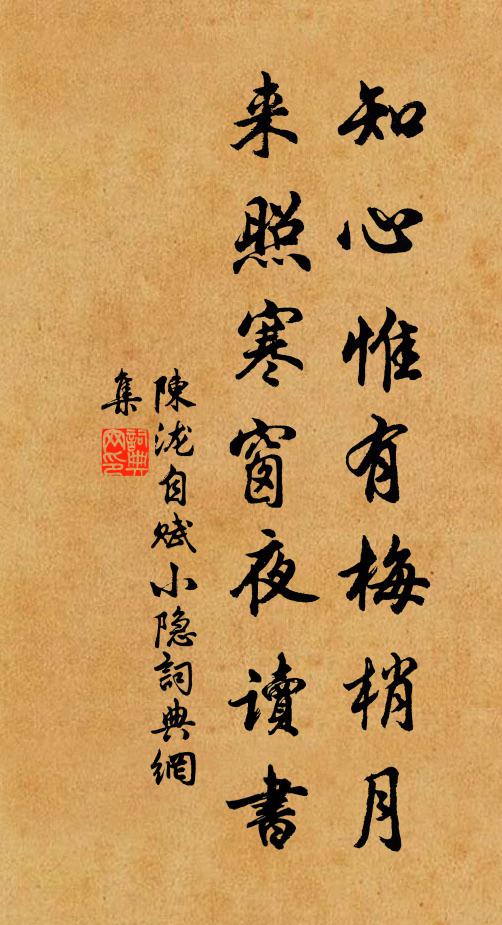 知心惟有梅梢月
来照寒窗夜讀書
陳泷自赋小隐詞典網
集
詞典
网印